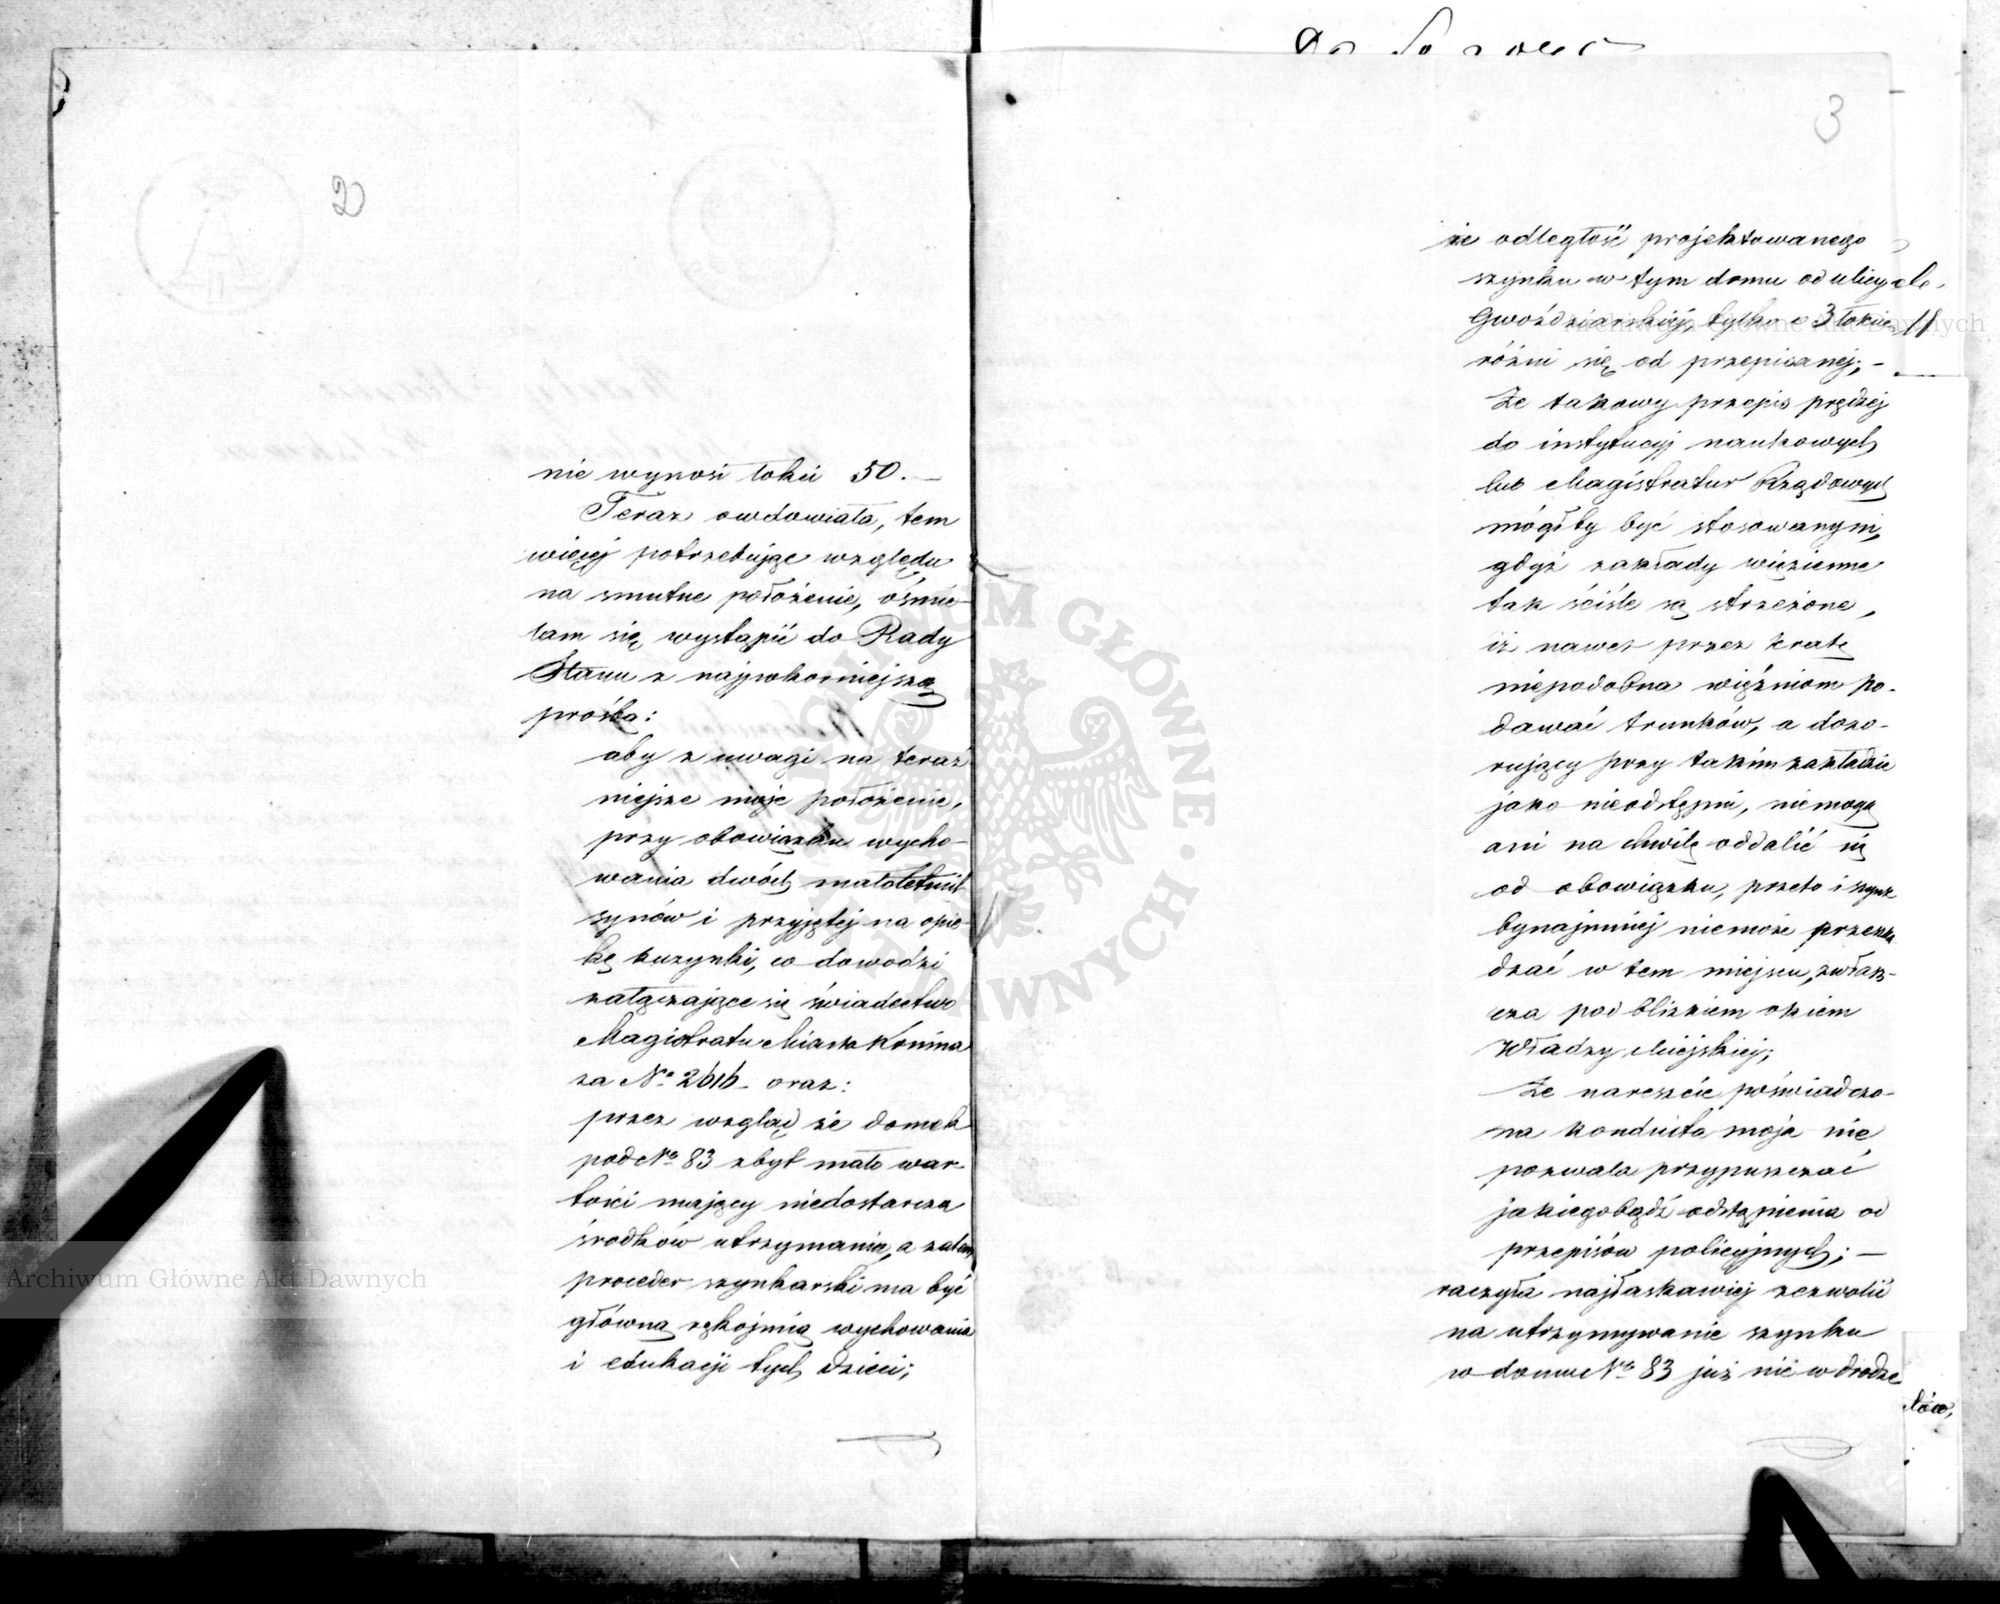 2
nie wynosi łokci 50. —
Teraz owdowiała, tem
więcej potrzebując względu
na smutne położenie, ośmie-
lam się wystąpić do Rady
Stanu z najpokorniejszą
prośbą:
aby z uwagi na teraź
niejsze moje położenie,
przy obowiązku wycho-
wania dwóch małoletnich
synów i przyjętej na opie-
kę kuzynki, co dowodzi
załączające się świadectwo
Magistratu Miasta Konina
za No 2616 oraz:
przez wzgląd że domek
pod No 83 zbyt mało war-
tości mający niedostarcza
środków utrzymania, a zatem
proceder szynkarski ma być
główną rękojmią wychowania
i edukacji tych dzieci;
3
że odległość projektowanego
szynku w tym domu od ulicy
Gwoździarskiej, tylko o 3 łokcie
różni się od przepisanej; —
Że takowy przepis prędzej
do instytucyj naukowych
lub Magistratur Rządowych
mógłby być stosowanym,
gdyż zakłady więzienne
tak ściśle są strzeżone,
iż nawet przez kratę
niepodobna więźniom po-
dawać trunków, a dozo-
rujący przy takim zakładzie
jako nieodstępni, niemogą
ani na chwilę oddalić się
od obowiązku, przeto i szynk
bynajmniej niemoże przeszka
dzać w tem miejscu, zwłasz-
cza pod bliskiem okiem
Władzy Miejskiej;
Że nareszcie poświadczo-
na konduita moja nie
pozwala przypuszczać
jakiegobądź odstąpienia od
przepisów policyjnych; —
raczyła najłaskawiej zezwolić
na utrzymywanie szynku
w domu No 83 już nie w drodze
Archiwum Główne Akt Dawnych
Archiwum Główne Akt Dawnych
ARCHIWUM GŁÓWNE AKT DAWNYCH